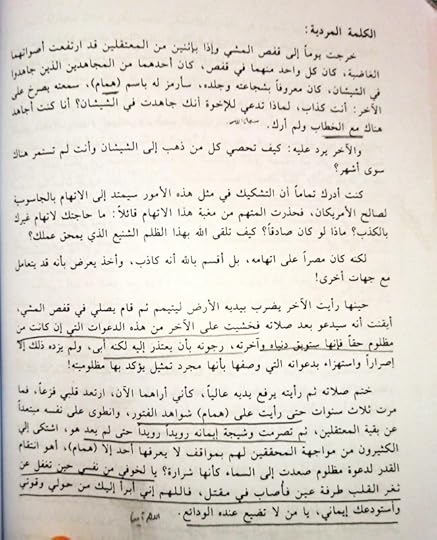 الكلمة المردية:
خرجت يوماً إلى قفص المشي وإذا بإثنين من المعتقلين قد ارتفعت أصواتهما
الغاضبة، كان كل واحد منهما في قفص، كان أحدهما من المجاهدين الذين جاهدوا
في الشيشان، كان معروفاً بشجاعته وجلده، سأرمز له باسم (همام)، سمعته يصرخ على
الآخر: أنت كذاب، لماذا تدعي للإخوة أنك جاهدت في الشيشان؟ أنا كنت أجاهد
هناك مع الخطاب ولم أرك.
والآخر يرد عليه: كيف تحصي كل من ذهب إلى الشيشان وأنت لم تستمر هناك
سوى أشهر؟
كنت أدرك تماماً أن التشكيك في مثل هذه الأمور سيمتد إلى الاتهام بالجاسوسية
لصالح الأمريكان، فحذرت المتهم من مغبة هذا الاتهام قائلاً: ما حاجتك لاتهام غيرك
بالكذب؟ ماذا لو كان صادقاً؟ كيف تلقى الله بهذا الظلم الشنيع الذي يمحق عملك؟
لكنه كان مصراً على اتهامه، بل أقسم بالله أنه كاذب، وأخذ يعرض بأنه قد يتعامل
مع جهات أخرى!
حينها رأيت الآخر يضرب بيديه الأرض ليتيمم ثم قام يصلي في قفص المشي،
أيقنت أنه سيدعو بعد صلاته فخشيت على الآخر من هذه الدعوات التي إن كانت من
مظلوم حقاً فإنها ستوبق دنياه وآخرته، رجوته بأن يعتذر إليه لكنه أبى، ولم يزده ذلك إلا
إصراراً واستهزاء بدعواته التي وصفها بأنها مجرد تمثيل يؤكد بها مظلوميته!
ختم صلاته ثم رأيته يرفع يديه عالياً، كأني أراهما الآن، ارتعد قلبي فزعاً، فما
مرت ثلاث سنوات حتى رأيت على (همام) شواهد الفتور، وانطوى على نفسه مبتعداً
عن بقية المعتقلين، ثم تصرمت وشيجة إيمانه رويداً رويداً حتى لم يعد هو، اشتكى إلي
الكثيرون من مواجهة المحققين لهم بمواقف لا يعرفها أحد إلا (همام)، أهو انتقام
القدر لدعوة مظلوم صعدت إلى السماء كأنها شرارة؟ يا لخوفي من نفسي حين تغفل عن
ثغر القلب طرفة عين فأصاب في مقتل، فاللهم إني أبرأ إليك من حولي وقوتي
وأستودعك إيماني، يا من لا تضيع عنده الودائع.
اللهم آمين